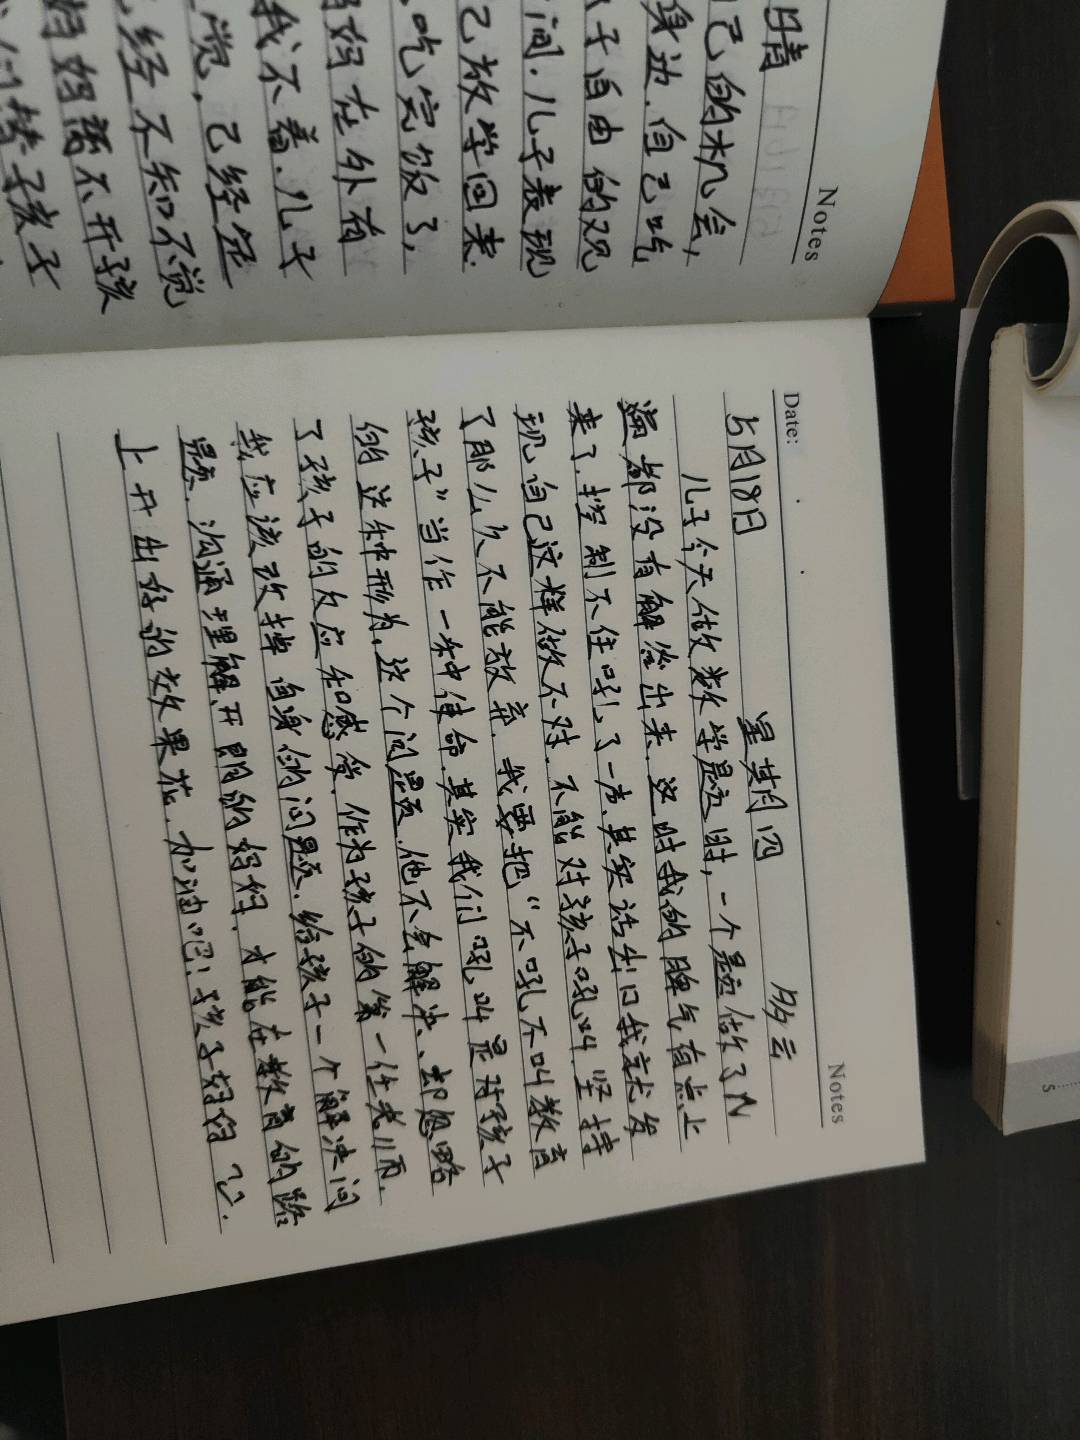 Notes
晴
己的机会,
身边.自己吃
子自由的观
间.儿子表现
己放学回来.
吃完饭了,
妈在外有
我不着.儿子
觉,己经
经不知不觉
妈妈离不开孩
们替子孩子
Date:
Notes
5月18日 星期四 多云
儿子今天做数学题时,一个题做了N
遍都没有解答出来.这时我的脾气有点上
来了.控制不住吼了一声.其实话出口我就发
现自己这样做不对.不能对孩子吼叫坚持
了那么久不能放弃.我要把“不吼不叫教育
孩子”当作一种使命.其实我们吼叫是对孩子
的这种形为,这个问题.他不会解决、却忽略
了孩子的反应和感受.作为孩子的第一任老师.
我应该改掉自身的问题.给孩子一个解决问
题、沟通理解、开朗的妈妈.才能在教育的路
上开出好的效果花.加油吧!孩子妈妈